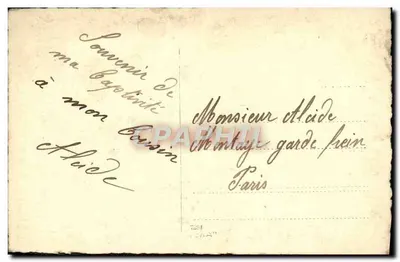 Souvenir de
ma Captivité
à mon Cousin
Alcide
Monsieur Alcide
Montaye garde frein
Paris